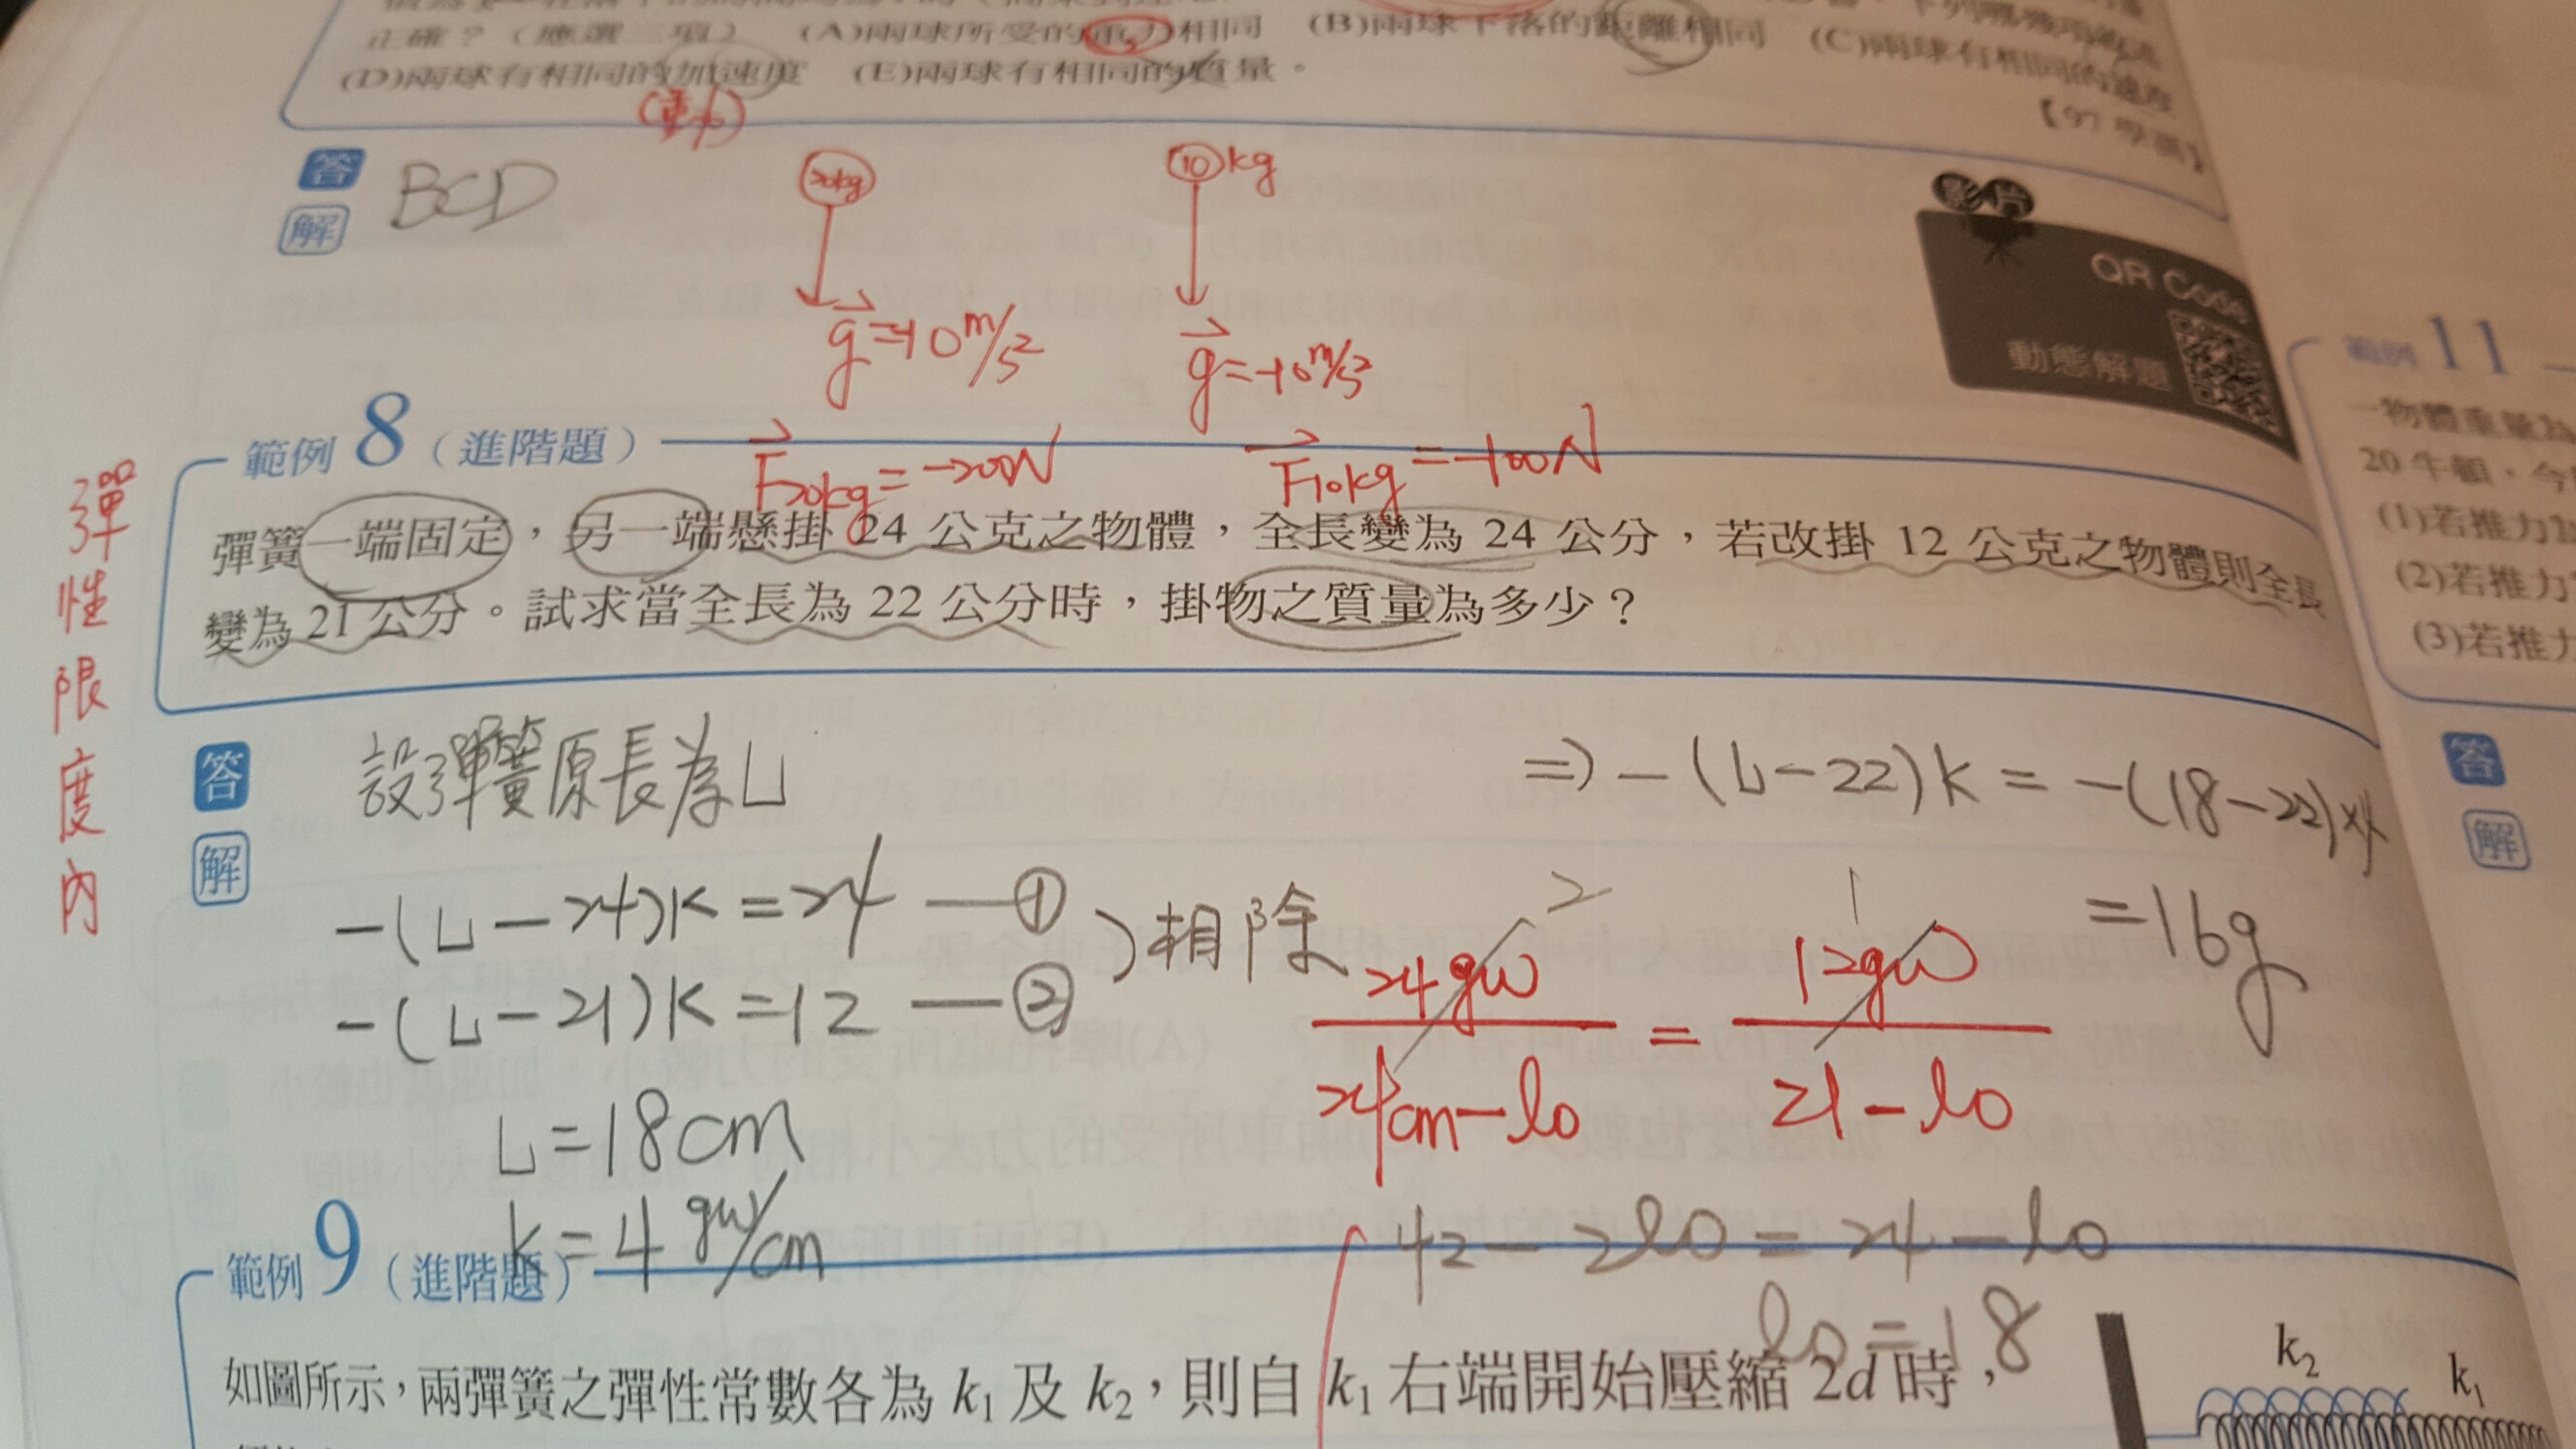 正確？（應選三項） (A)兩球所受的重力相同 (B)兩球下落的距離相同 (C)兩球有相同的速度
(D)兩球有相同的加速度 (E)兩球有相同的質量。
(重力)
【97 學測】
答 BCD
解
20kg
10 kg
g=-10 m/s²
g=-10 m/s²
F20kg = -200N
F10kg = -100N
影片
QR Code
動態解題
彈性限度內
範例 8（進階題）
彈簧一端固定，另一端懸掛 24 公克之物體，全長變為 24 公分，若改掛 12 公克之物體則全長
變為 21 公分。試求當全長為 22 公分時，掛物之質量為多少？
答 設彈簧原長為L
解
-(L-24)k=24 —①
-(L-21)k=12 —②
相除
L=18cm
k=4 gw/cm
⇒ -(L-22)k = -(18-22)×4
=16g
24gw / 24cm-l0 = 12gw / 21-l0
2
1
42-2l0 = 24-l0
l0=18
範例 9（進階題）
如圖所示，兩彈簧之彈性常數各為 k1 及 k2，則自 k1 右端開始壓縮 2d 時，
k2
k1
範例 11
一物體重量為
20 牛頓，今
(1)若推力為
(2)若推力
(3)若推力
答
解